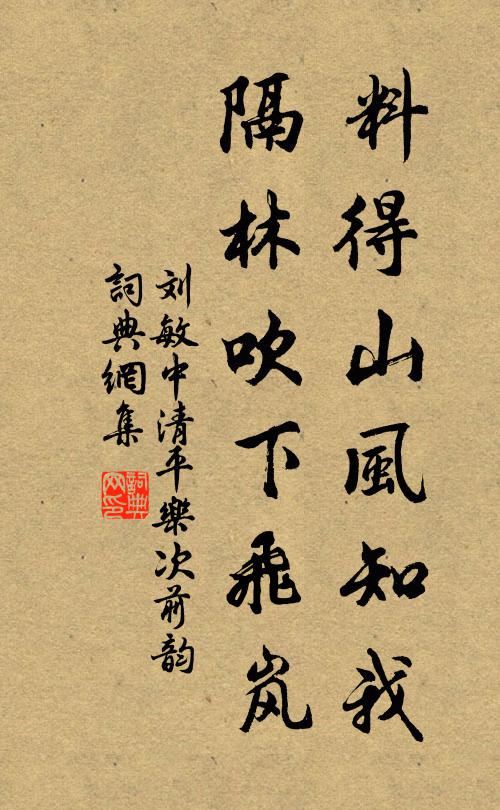 料得山風知我
隔林吹下飛岚
刘敏中清平樂次前韵
詞典網集
詞典网印